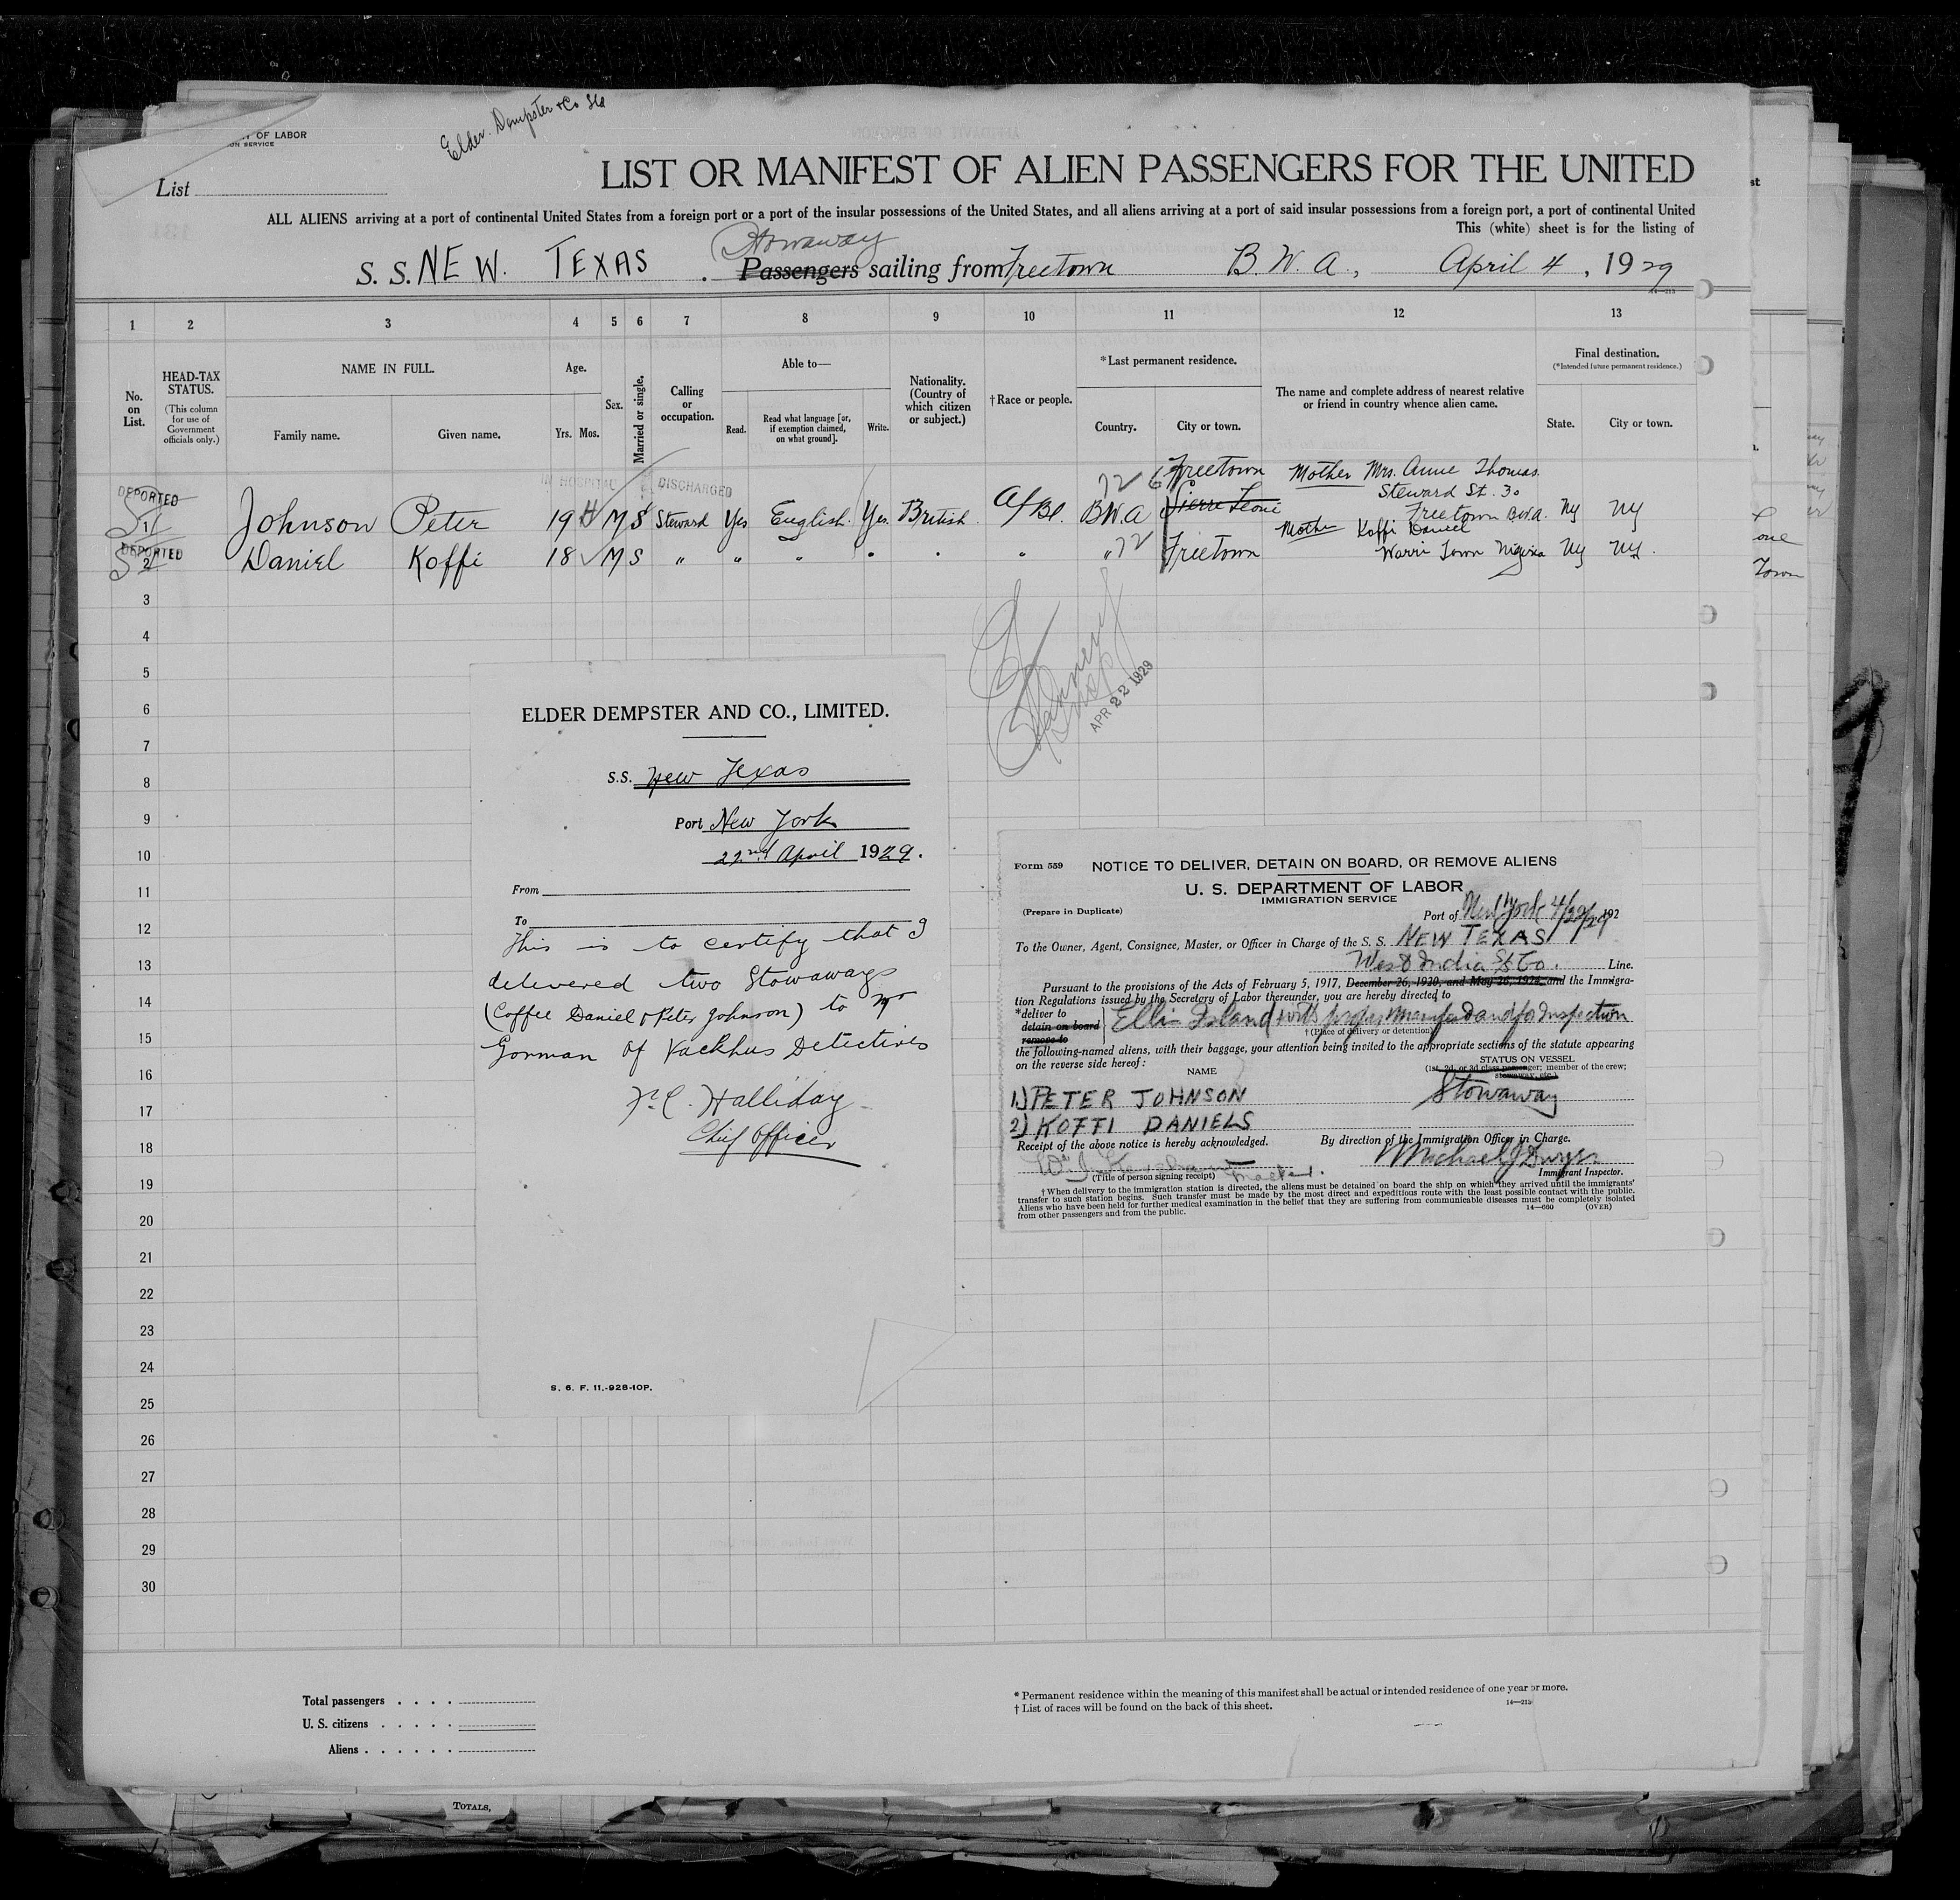 Elder Dempster & Co Ltd
OF LABOR
ION SERVICE
List
LIST OR MANIFEST OF ALIEN PASSENGERS FOR THE UNITED
ALL ALIENS arriving at a port of continental United States from a foreign port or a port of the insular possessions of the United States, and all aliens arriving at a port of said insular possessions from a foreign port, a port of continental United
This (white) sheet is for the listing of
Stowaway
S. S. NEW TEXAS . Passengers sailing from Freetown B.W.A., April 4, 1929
1 2 3 4 5 6 7 8 9 10 11 12 13
No. on List.
HEAD-TAX STATUS.
(This column for use of Government officials only.)
NAME IN FULL.
Family name. Given name.
Age.
Yrs. Mos.
Sex.
Married or single.
Calling or occupation.
Able to—
Read. Read what language [or, if exemption claimed, on what ground]. Write.
Nationality. (Country of which citizen or subject.)
† Race or people.
* Last permanent residence.
Country. City or town.
The name and complete address of nearest relative or friend in country whence alien came.
Final destination.
(*Intended future permanent residence.)
State. City or town.
IN HOSPITAL DISCHARGED
72 Freetown Mother Mrs. Anne Thomas
Steward St. 30
DEPORTED
S 1 Johnson Peter 19 M S Steward Yes English Yes British Af Bl. B.W.A Sierra Leone Freetown B.W.A. Ny Ny
Mother Koffi Daniel
DEPORTED
S 2 Daniel Koffi 18 M S " " " " " " " 72 Freetown Warri Town Nigeria Ny Ny.
one
Town
3
4
5
6
7
8
9
10
11
12
13
14
15
16
17
18
19
20
21
22
23
24
25
26
27
28
29
30
Insp
APR 22 1929
ELDER DEMPSTER AND CO., LIMITED.
S.S. New Texas
Port New York
22nd April 1929.
From
To
This is to certify that I
delivered two Stowaways
(Coffee Daniel & Peter Johnson) to Mr
Gorman of Vackhus Detectives
Halliday
Chief Officer
S. 6. F. 11.-928-10P.
Form 559 NOTICE TO DELIVER, DETAIN ON BOARD, OR REMOVE ALIENS
U. S. DEPARTMENT OF LABOR
IMMIGRATION SERVICE
(Prepare in Duplicate) Port of New York 4/22/29 192
To the Owner, Agent, Consignee, Master, or Officer in Charge of the S. S. NEW TEXAS
West India SS Co. Line.
Pursuant to the provisions of the Acts of February 5, 1917, December 26, 1920, and May 26, 1924, and the Immigra-
tion Regulations issued by the Secretary of Labor thereunder, you are hereby directed to
*deliver to
detain on board
remove to
Ellis Island with proper manifest and for Inspection
† (Place of delivery or detention)
the following-named aliens, with their baggage, your attention being invited to the appropriate sections of the statute appearing
on the reverse side hereof:
NAME
STATUS ON VESSEL
(1st, 2d, or 3d class passenger; member of the crew; stowaway, etc.)
1) PETER JOHNSON Stowaway
2) KOFFI DANIELS
Receipt of the above notice is hereby acknowledged. By direction of the Immigration Officer in Charge.
Michael J Dwyer
(Title of person signing receipt) Immigrant Inspector.
† When delivery to the immigration station is directed, the aliens must be detained on board the ship on which they arrived until the immigrants'
transfer to such station begins. Such transfer must be made by the most direct and expeditious route with the least possible contact with the public.
Aliens who have been held for further medical examination in the belief that they are suffering from communicable diseases must be completely isolated
from other passengers and from the public. 14—660 (OVER)
Total passengers
U. S. citizens
Aliens
* Permanent residence within the meaning of this manifest shall be actual or intended residence of one year or more.
† List of races will be found on the back of this sheet.
14—213
TOTALS,